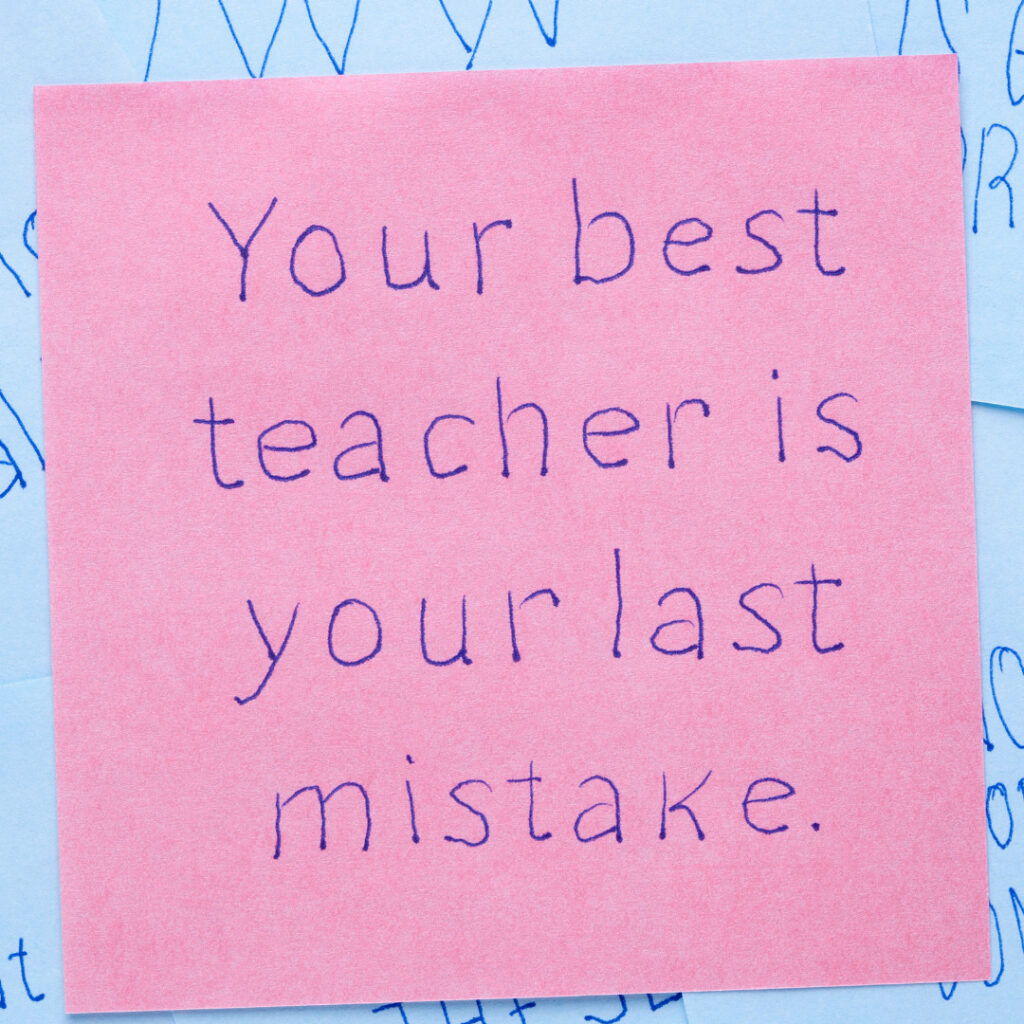 Your best
teacher is
your last
mistake.